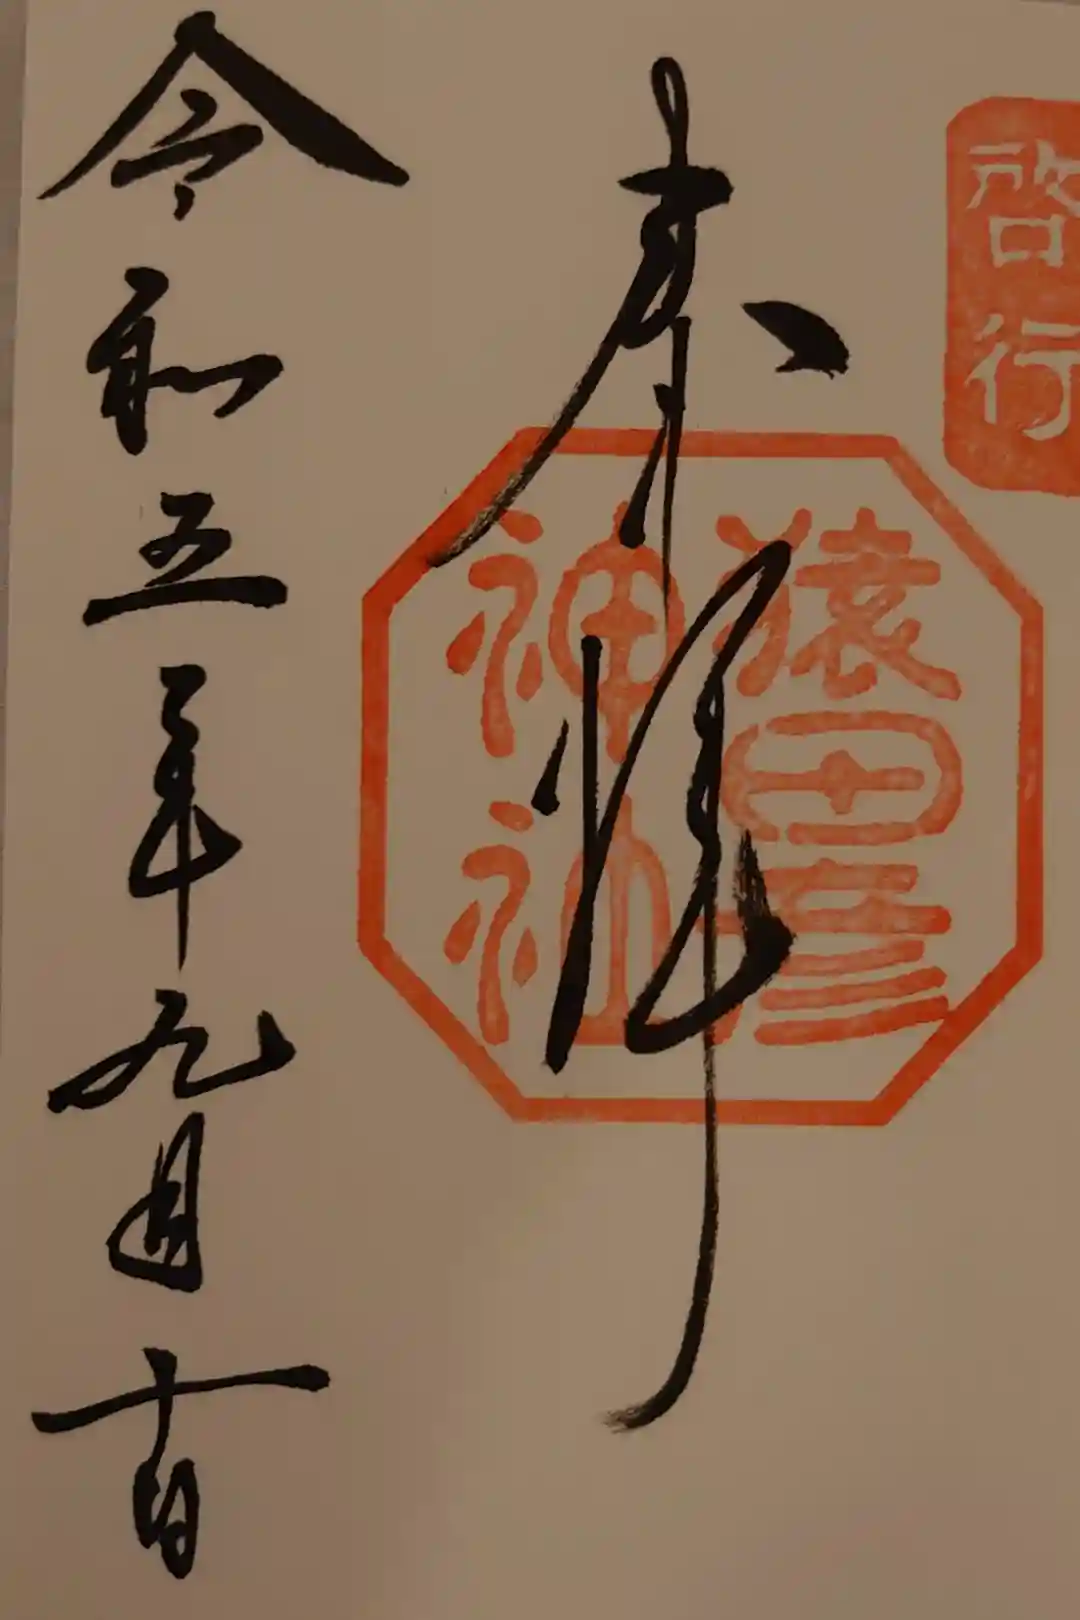 啓行
奉拝
猿田彦
神社
令和五年九月十日